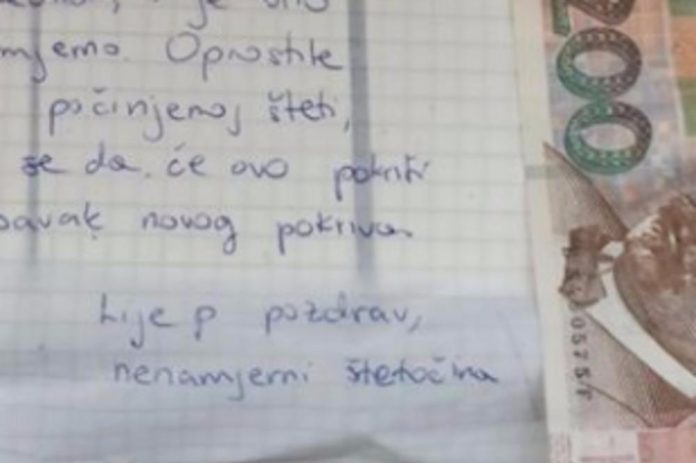 je ono
mjemo. Oprostite
počinjenoj šteti,
se da će ovo pokriti
novog pokriva
Lijep pozdrav,
nenamjerni štetočina
200